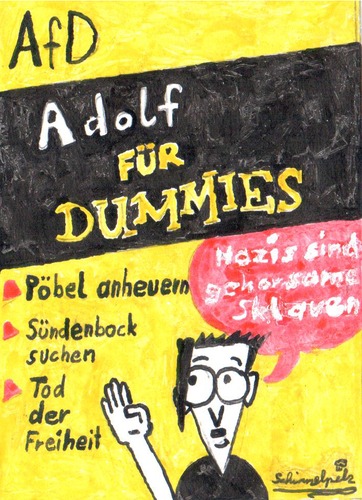 AfD
Adolf
FÜR
DUMMIES
Nazis sind
gehorsame
sklaven
Pöbel anheuern
Sündenbock
suchen
Tod
der
Freiheit
Schimmelpelz